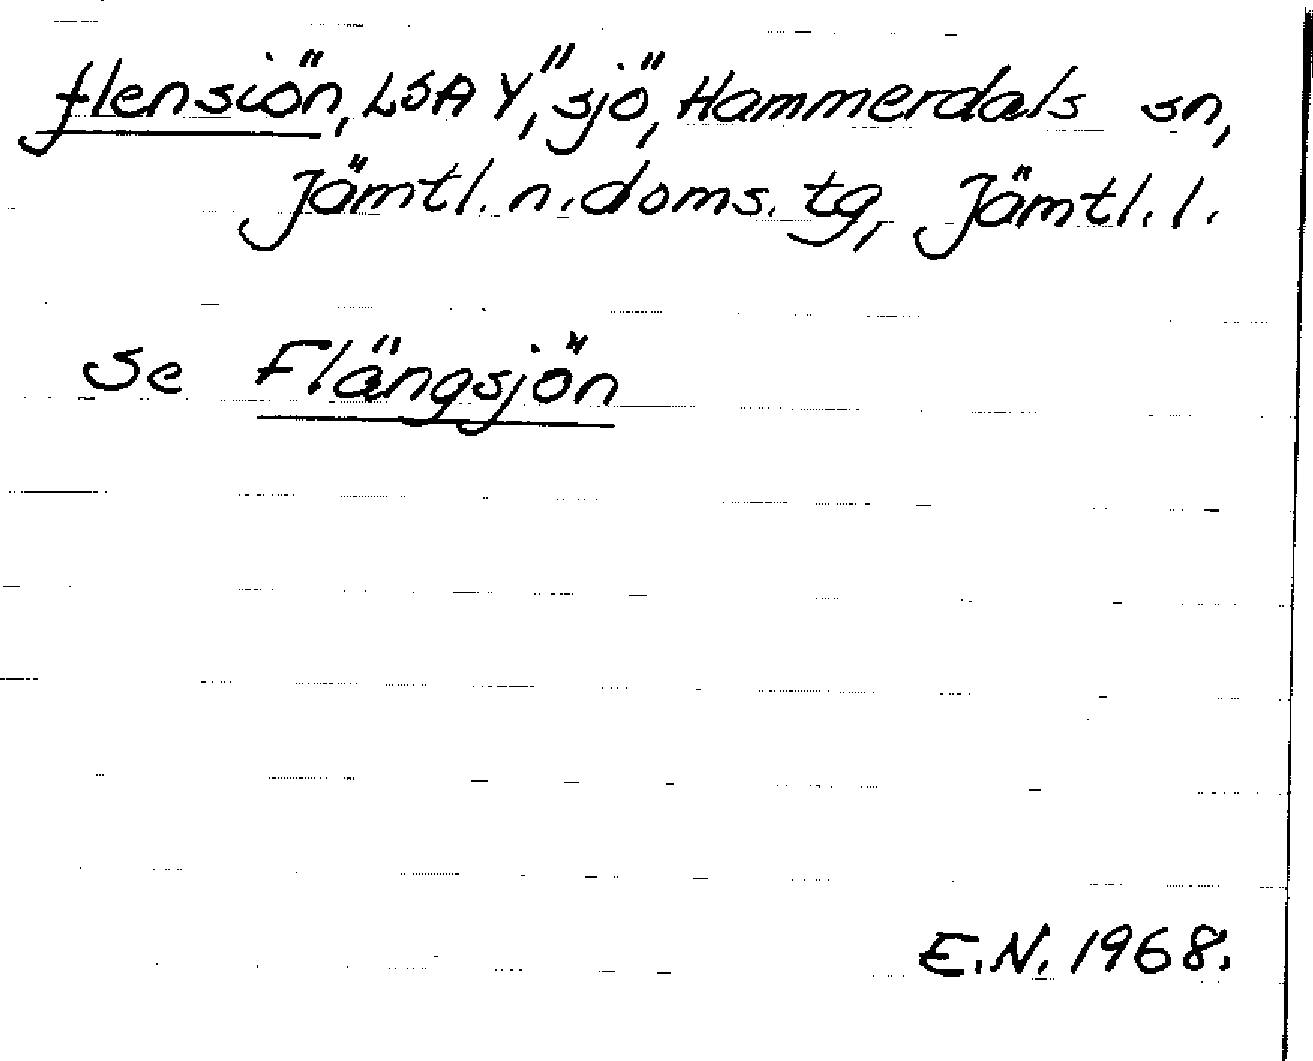 flensiön, LSA Y", sjö, Hammerdals sn,
Jämtl. n. doms. tg, Jämtl. l.
se Flängsjön
E.N. 1968.